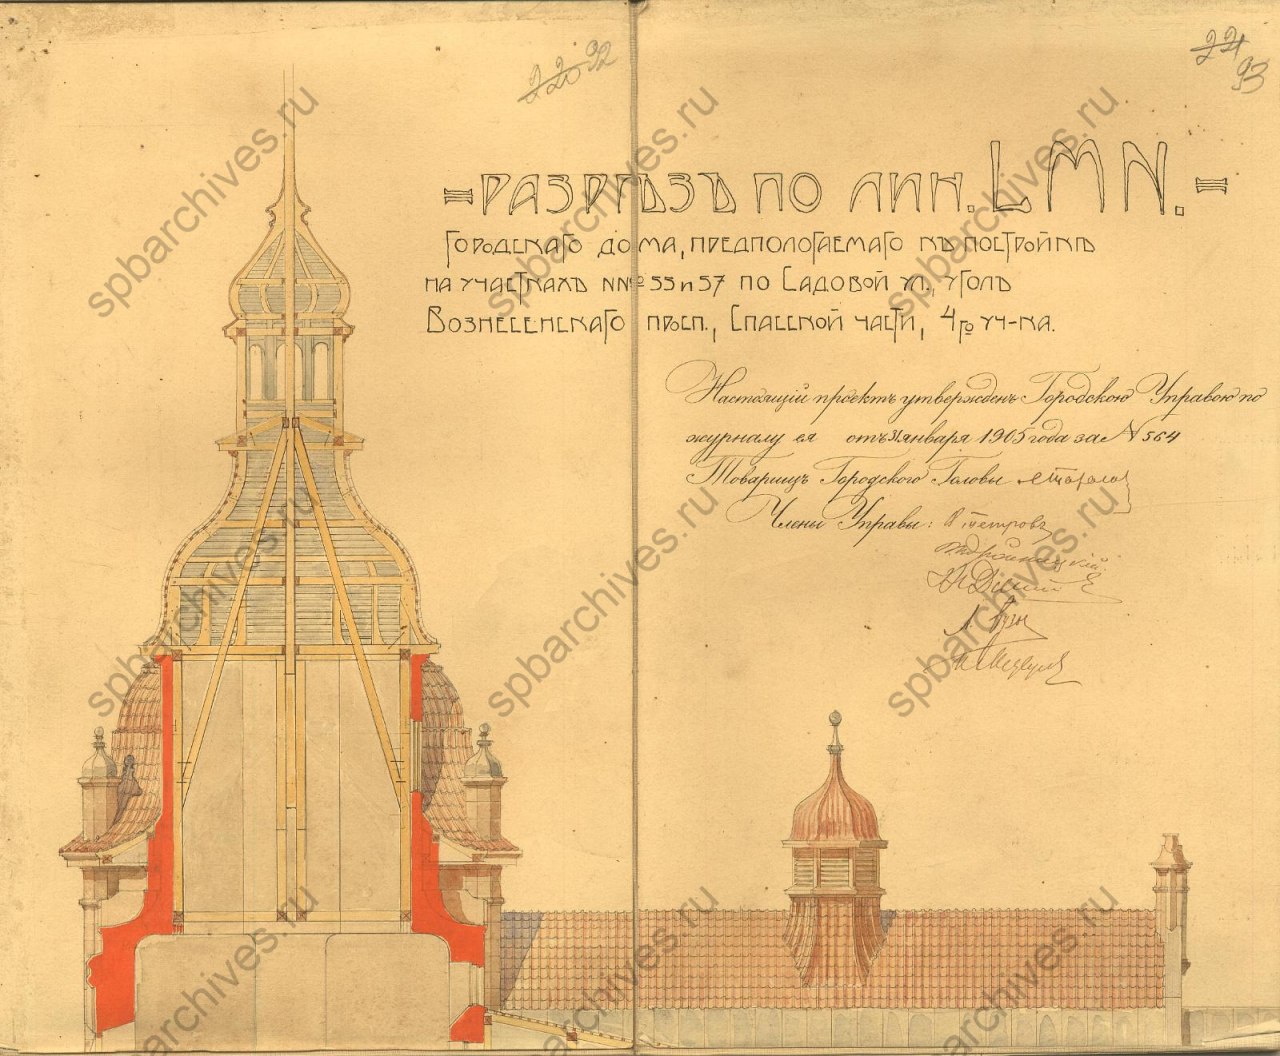 220 92
221 93
=РАЗРѢЗЪ ПО ЛИН. LMN.=
ГОРОДСКАГО ДОМА, ПРЕДПОЛОГАЕМАГО КЪ ПОСТРОЙКѢ
НА УЧАСТКАХЪ NNº 55 и 57 ПО САДОВОЙ УЛ., УГОЛЪ
ВОЗНЕСЕНСКАГО ПРОСП., СПАССКОЙ ЧАСТИ, 4го УЧ-КА.
Настоящій проектъ утвержденъ Городскою Управою по
журналу ея отъ 31 января 1905 года за № 564
Товарищъ Городского Головы
Члены Управы: Петровъ
spbarchives.ru
spbarchives.ru
spbarchives.ru
spbarchives.ru
spbarchives.ru
spbarchives.ru
spbarchives.ru
spbarchives.ru
spbarchives.ru